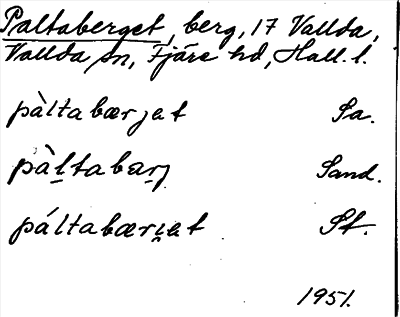 Paltaberget, berg, 17 Vallda,
Vallda sn, Fjäre hd, Hall. l.
pàltabærjet Sa.
pàḻtabæṟj Sand.
páltabæri̯et St.
1951.